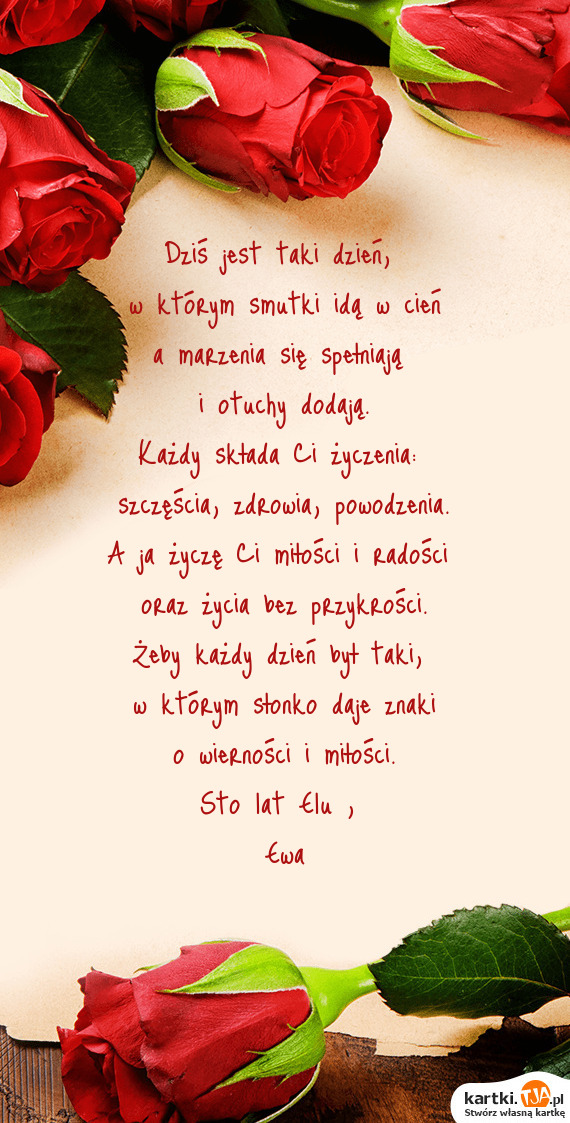 Dziś jest taki dzień,
w którym smutki idą w cień
a marzenia się spełniają
i otuchy dodają.
Każdy składa Ci życzenia:
szczęścia, zdrowia, powodzenia.
A ja życzę Ci miłości i radości
oraz życia bez przykrości.
Żeby każdy dzień był taki,
w którym słonko daje znaki
o wierności i miłości.
Sto lat Elu ,
Ewa
kartki.TJA.pl
Stwórz własną kartkę